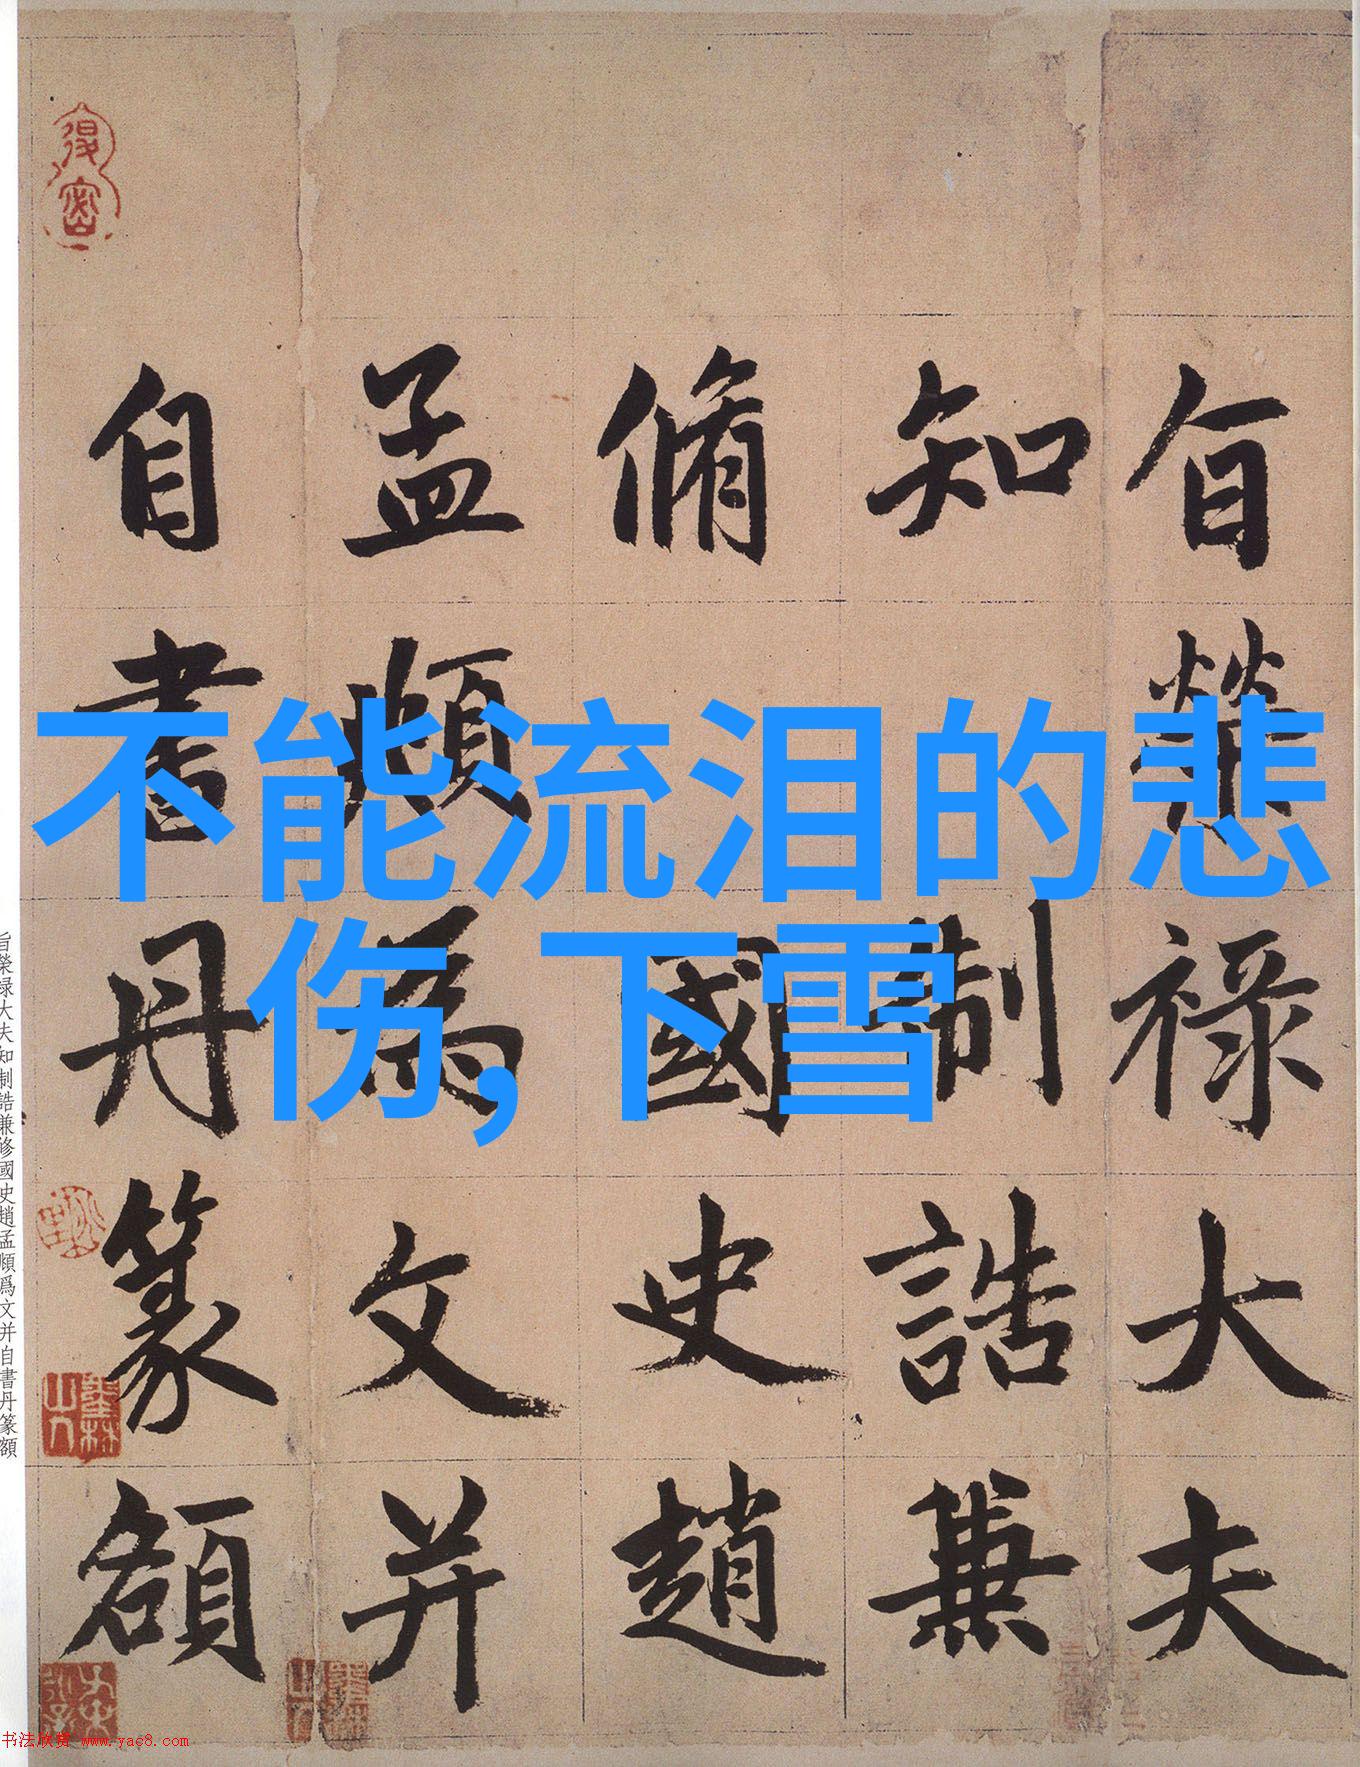 旨榮祿大夫
知制誥兼
脩國史趙
孟頫為文并
自書丹篆額
不能流泪的悲
伤,下雪
旨榮禄大夫知制誥兼修國史趙孟頫爲文并自書丹篆額
书法欣赏 www.yac8.com